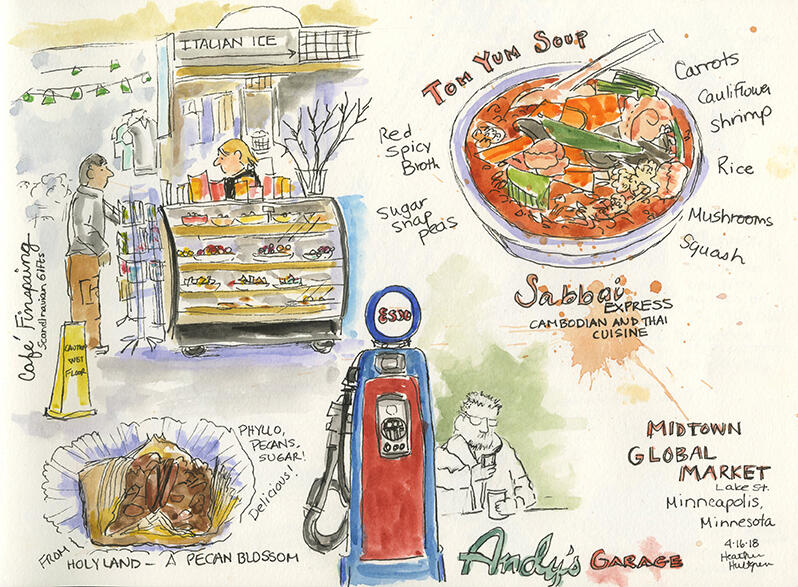 ITALIAN ICE
TOM YUM SOUP
Carrots
Cauliflower
Shrimp
Rice
Mushrooms
Squash
Red
Spicy
Broth
Sugar
snap
peas
Sabbai
EXPRESS
CAMBODIAN AND THAI
CUISINE
Café Finspång
Scandinavian Gifts
CAUTION
WET
FLOOR
ESSO
PHYLLO,
PECANS,
SUGAR!
Delicious!
FROM HOLYLAND - A PECAN BLOSSOM
Andy's GARAGE
MIDTOWN
GLOBAL
MARKET
Lake St.
Minneapolis,
Minnesota
4-16-18
Heather
Hultgren